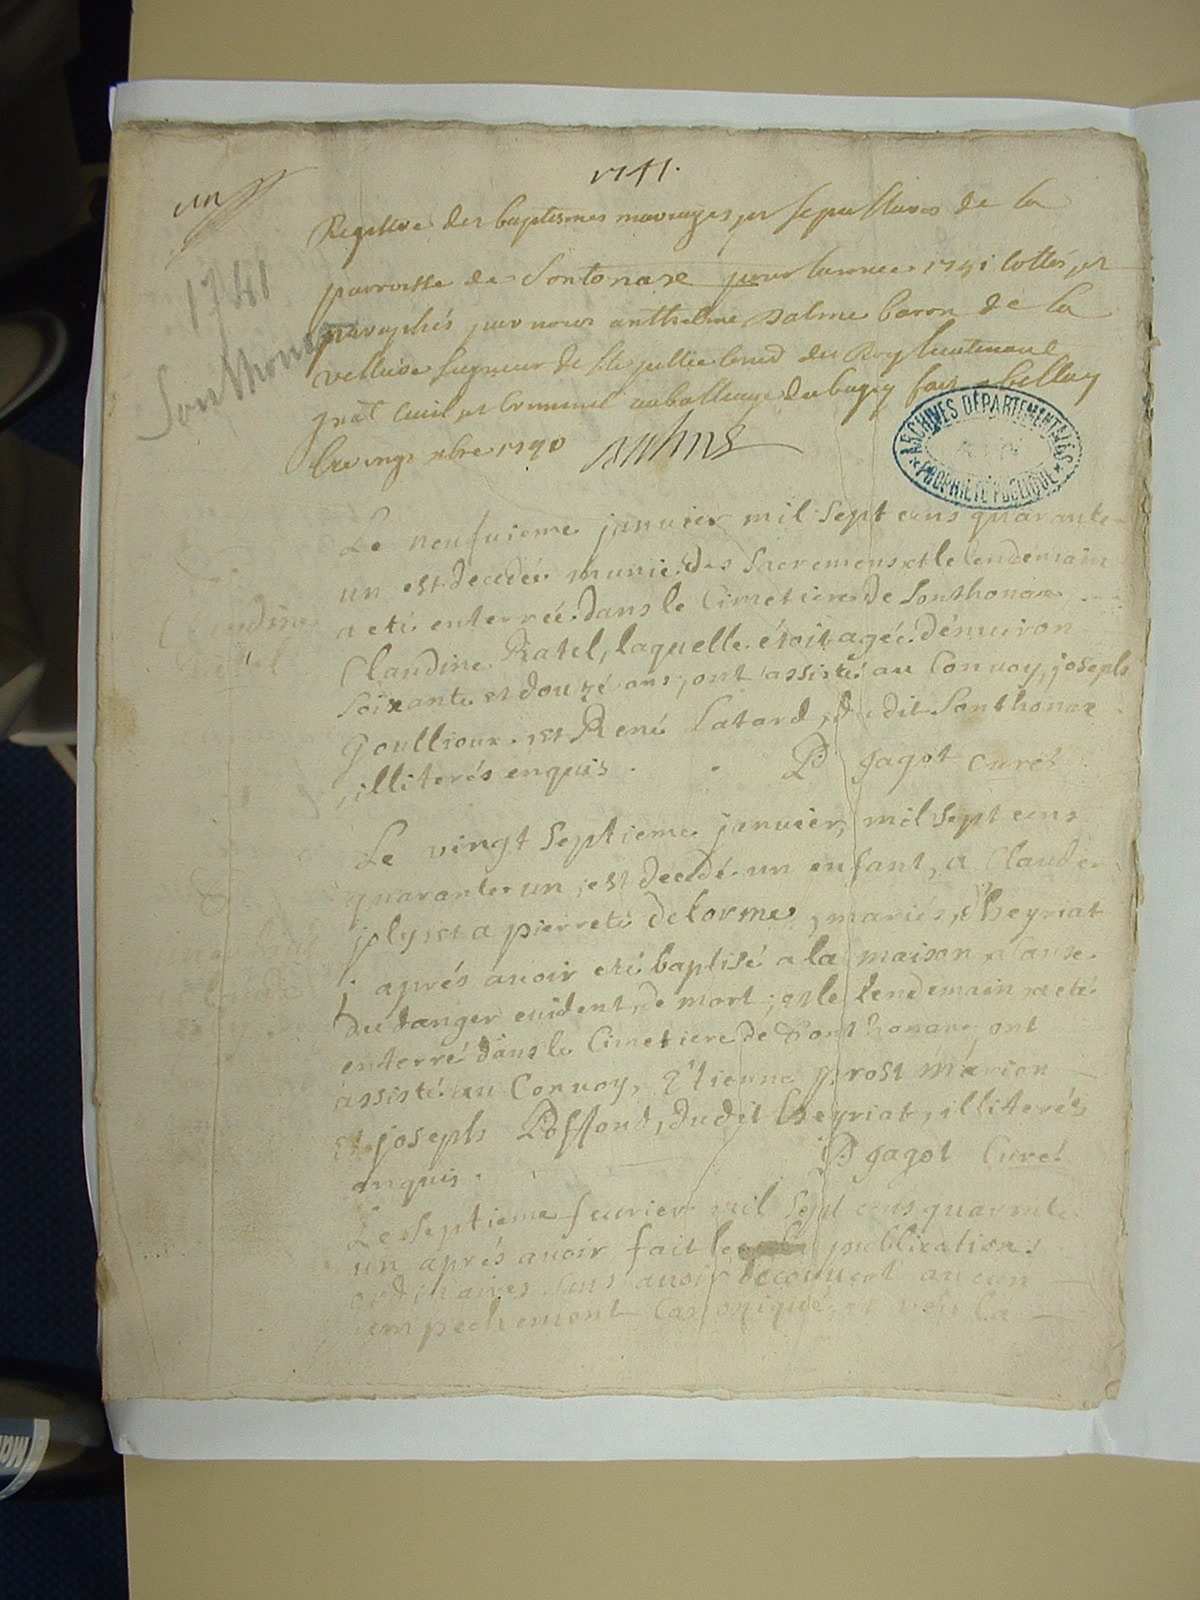 1741.
un
Registre des baptesmes mariages et sepultures de la
parroisse de Sontonaxe pour lannee 1741 cottés et
paraphés par nous anthelme Balme baron de la
velliere seigneur de Ste Jullie Consr du Roy lieutenant
gnal Civil et Criminel au balliage du bugey fait a belley
le vingt xbre 1740
1741
Sonthonnax
ARCHIVES DÉPARTEMENTALES
AIN
PROPRIÉTÉ PUBLIQUE
Le neufuieme januier mil sept cens quarante
un est decedée munie des sacremens et le lendemain
a eté enterrée dans le Cimetiere de Sonthonax
Claudine Ratel, laquelle étoit agée d'enuiron
soixante et douze ans, ont assisté au Conuoy, joseph
Goullioux et René Catard, dudit Sonthonax
illiterés enquis. P jagot curé
Claudine
Ratel
Le vingt septieme januier, mil sept cens
quarante un, est decedé un enfant, a Claude
a pierrete delorme, mariés, d'heyriat
aprés auoir eté baptisé a la maison a cause
du danger euident de mort; et le lendemain a eté
enterré dans le Cimetiere de Sonthonax, ont
assisté au Conuoy, Etienne prost marion
et joseph Poffond, dudit heyriat, illiterés
enquis. P jagot Curé
Le septieme feurier mil sept cens quarante
un aprés auoir fait les publications
ordinaires sans auoir decouuert aucun
empechement Canonique, et veu la